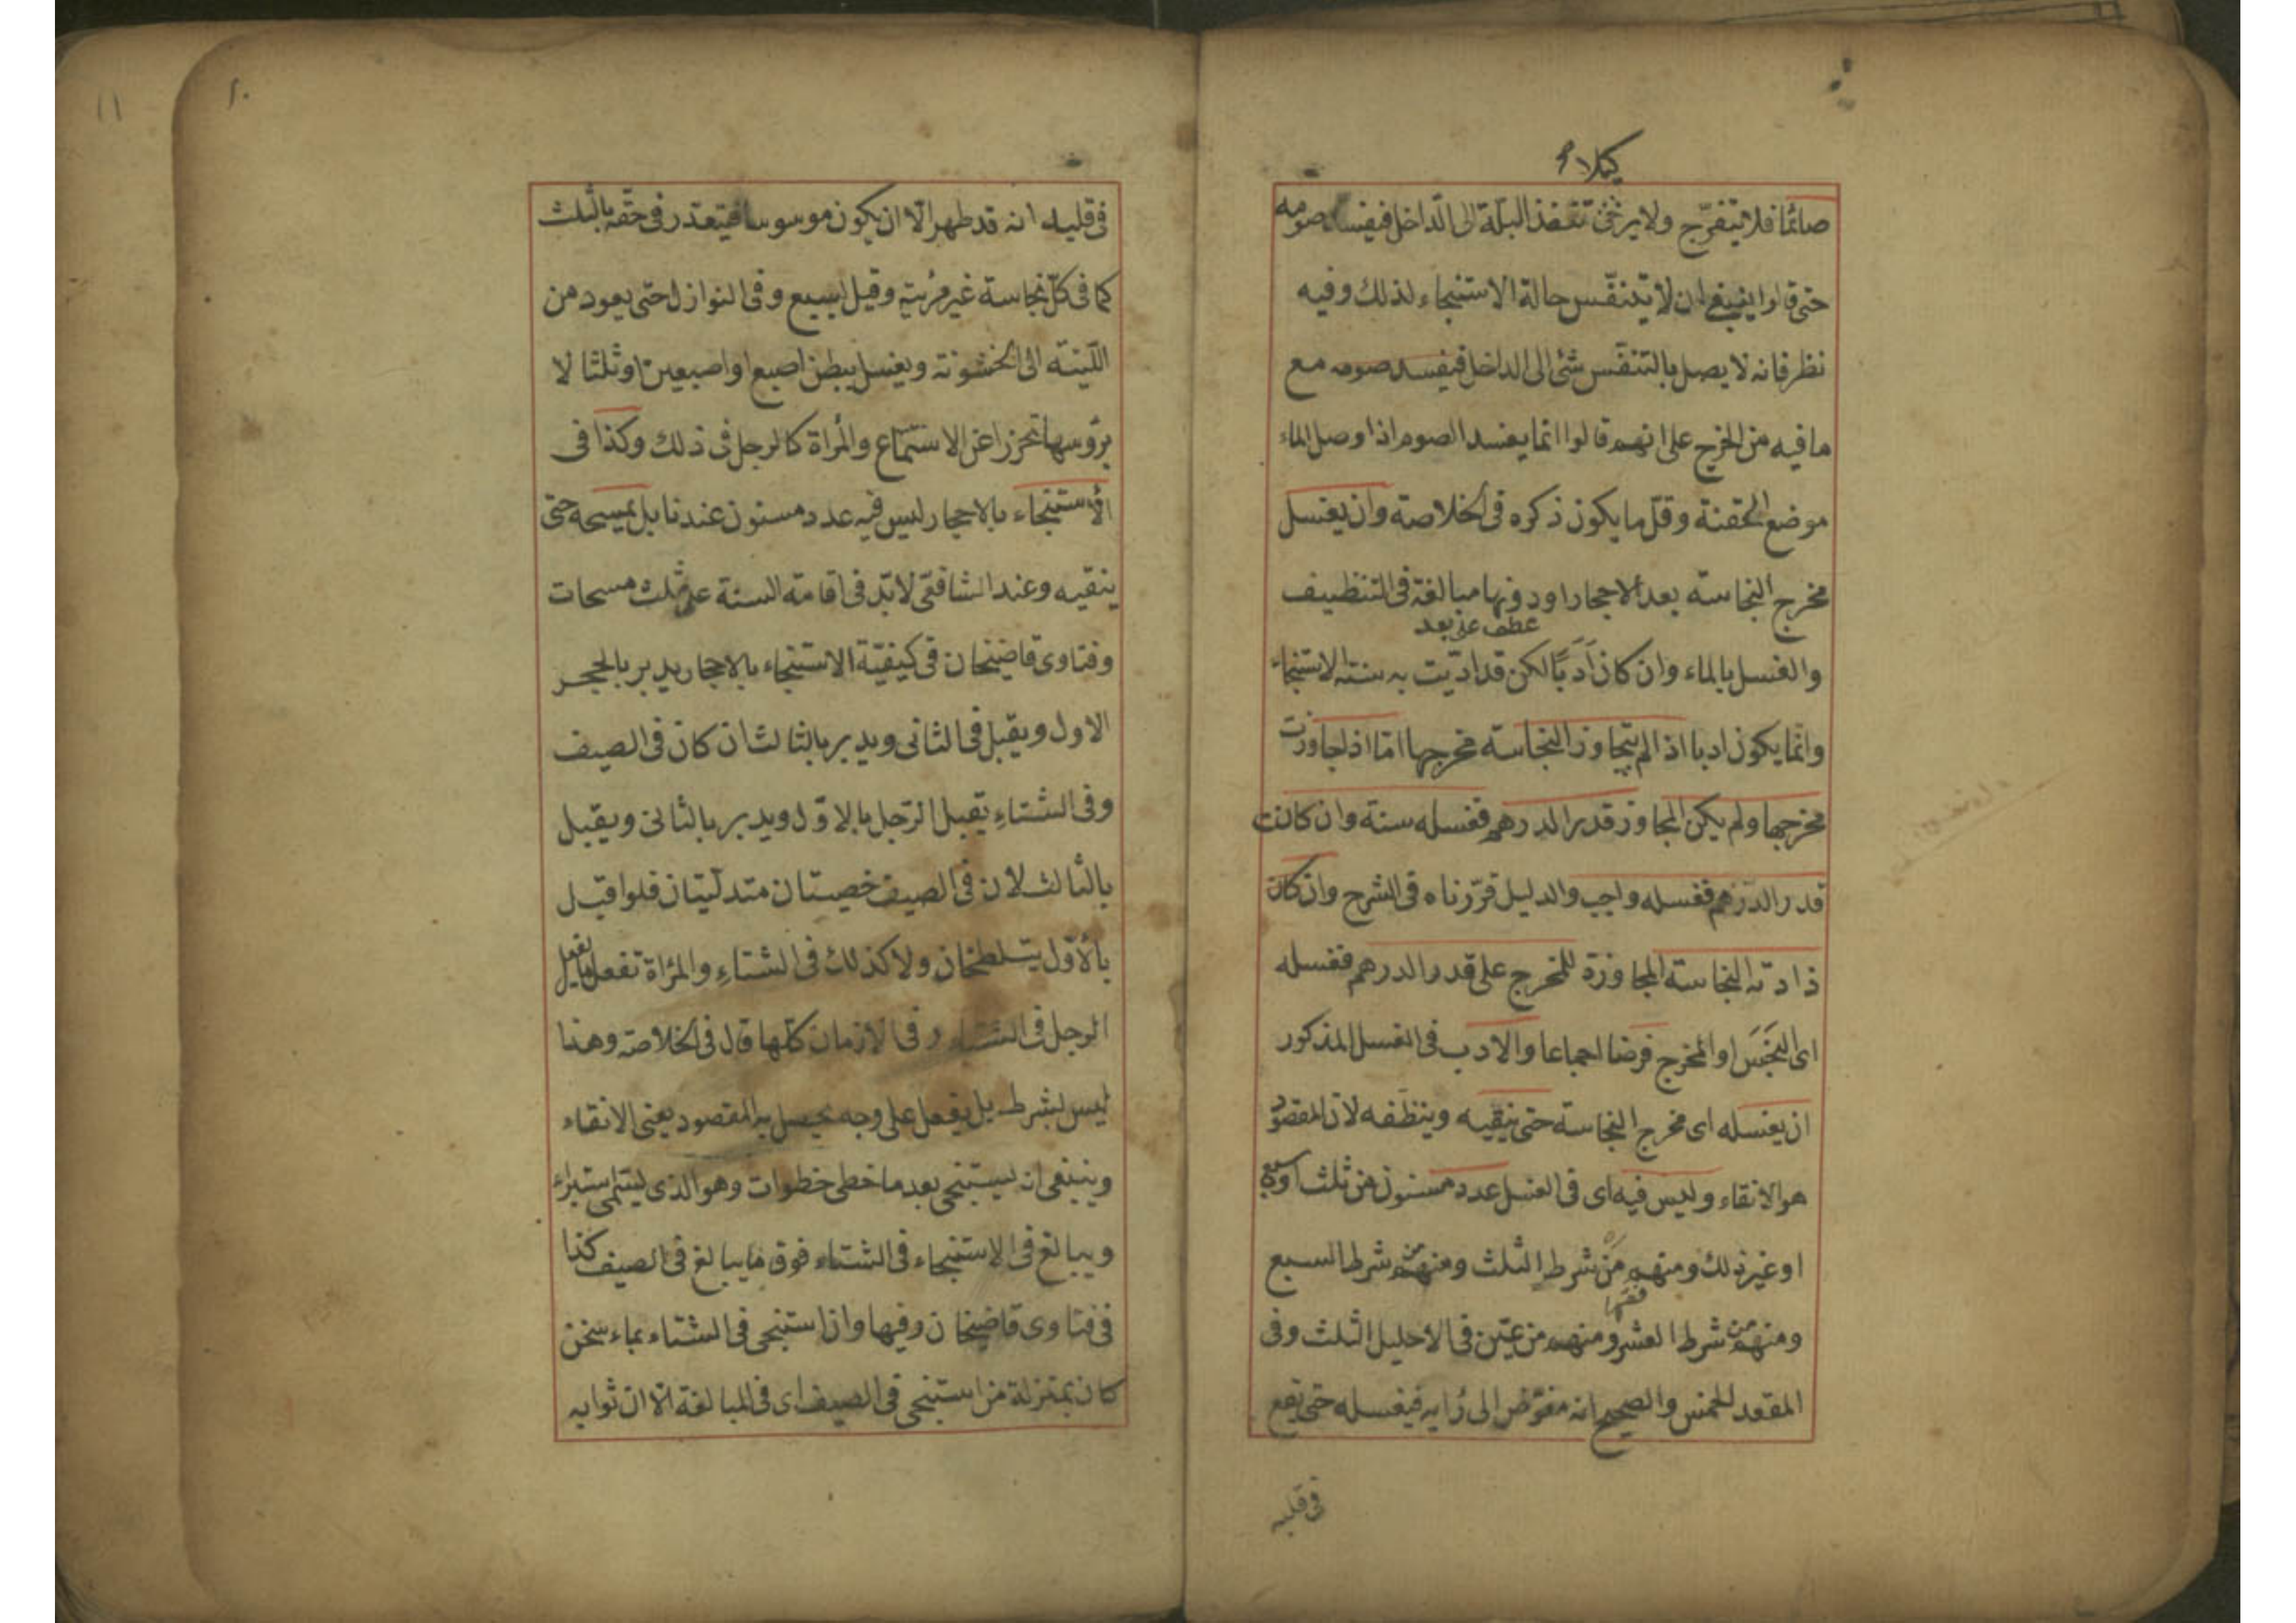 كيلا
صائما فلا يتفرج ولا يرخى تنفذ البلة الى الداخل فيفسد صومه
حتى قالوا ينبغى ان لا يتنفس حالة الاستنجاء لذلك وفيه
نظر فانه لا يصل بالتنفس شئ الى الداخل فيفسد صومه مع
ما فيه من الحرج على انهم قالوا انما يفسد الصوم اذا وصل الماء
موضع الحقنة وقل ما يكون ذكره فى الخلاصة وان يغسل
مخرج النجاسة بعد الاحجار او دونها مبالغة فى التنظيف
عطف على بعد
والغسل بالماء وان كان اَدَبًا لكن قد اديت به سنة الاستنجاء
وانما يكون ادبا اذا لم يتجاوز النجاسة مخرجها اما اذا جاوزت
مخرجها ولم يكن المجاوز قدر الدرهم فغسله سنة وان كانت
قدر الدرهم فغسله واجب والدليل قررناه فى الشرح وان كان
زادت النجاسة المجاوزة للمخرج على قدر الدرهم فغسله
اى النجَس او المخرج فرض اجماعا والادب فى الغسل المذكور
ان يغسله اى مخرج النجاسة حتى ينقيه وينظفه لان المقصود
هو الانقاء وليس فيه اى فى الغسل عدد مسنون من ثلث او سبع
او غير ذلك ومنهم مَن شرط الثلث ومنهم من شرط السبع
ومنهم من شرط العشر ومنهم من عين فى الاحليل الثلث وفى
المقعد للخمس والصحيح انه مفوض الى رايه فيغسله حتى يقع
فى قلبه
١١
١٠
فى قلبه انه قد طهر الا ان يكون موسوسا فيتقدر فى حقه بالثلث
كما فى كل نجاسة غير مرئية وقيل بسبع وفى النوازل حتى يعود من
اللينة الى الخشونة ويغسل ببطن اصبع او اصبعين او ثلثا لا
برؤسها تحرزا عن الاستمتاع والمرأة كالرجل فى ذلك وكذا فى
الاستنجاء بالاحجار ليس فيه عدد مسنون عندنا بل يمسحه حتى
ينقيه وعند الشافعى لابد فى اقامة السنة على ثلث مسحات
وفتاوى قاضيخان فى كيفية الاستنجاء بالاحجار يدبر بالحجر
الاول ويقبل فى الثانى ويدبر بالثالث ان كان فى الصيف
وفى الشتاء يقبل الرجل بالاول ويدبر بالثانى ويقبل
بالثالث لان فى الصيف خصيتان متدليتان فلو اقبل
بالأول يتلطخان ولا كذلك فى الشتاء والمرأة تفعل ما يفعل
الرجل فى الشتاء فى الازمان كلها قال فى الخلاصة وهذا
ليس بشرط بل يفعل على وجه يحصل به المقصود يعنى الانقاء
وينبغى ان يستنجى بعد ما خطى خطوات وهو الذى يسمى استبراء
ويبالغ فى الاستنجاء فى الشتاء فوق ما يبالغ فى الصيف كذا
فى فتاوى قاضيخان وفيها وان استنجى فى الشتاء بماء سخن
كان بمنزلة من استنجى فى الصيف اى فى المبالغة الا ان ثوابه